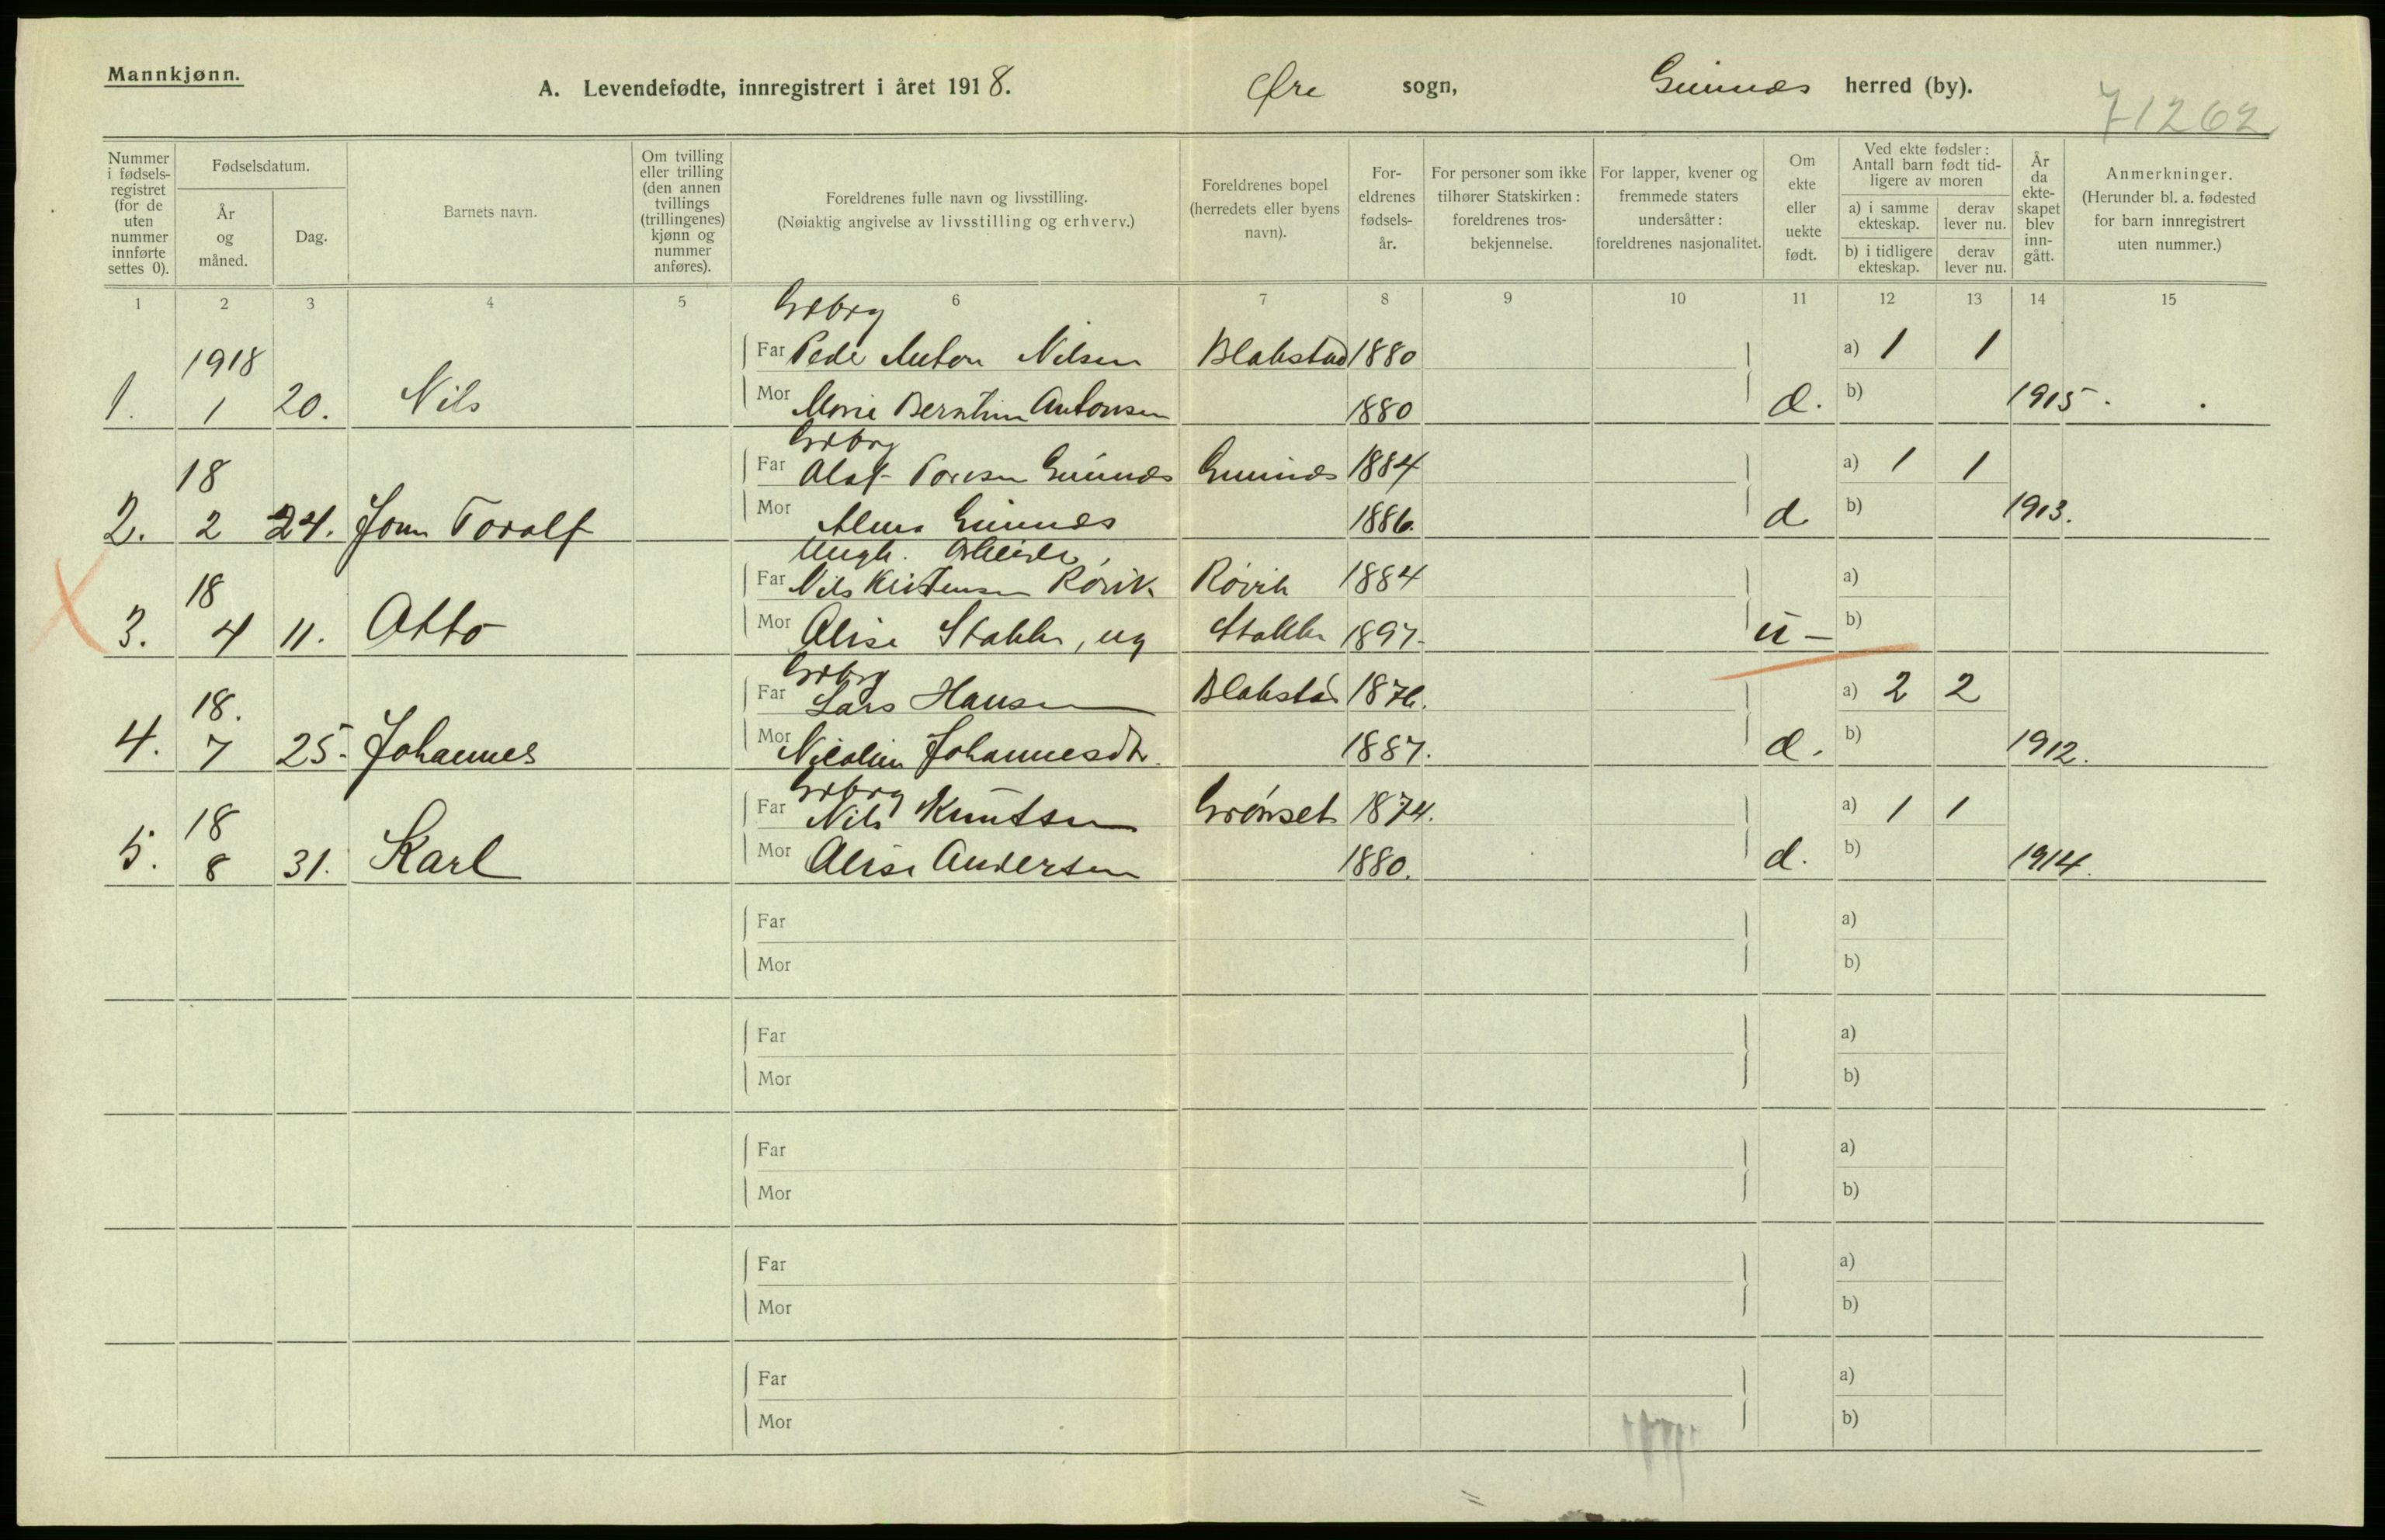 Mannkjønn.
A. Levendefødte, innregistrert i året 1918. Øre sogn, Gimnes herred (by).
71262
Nummer i fødsels-registret (for de uten nummer innførte settes 0).
Fødselsdatum.
År og måned.
Dag.
Barnets navn.
Om tvilling eller trilling (den annen tvillings (trillingenes) kjønn og nummer anføres).
Foreldrenes fulle navn og livsstilling.
(Nøiaktig angivelse av livsstilling og erhverv.)
Foreldrenes bopel (herredets eller byens navn).
For-eldrenes fødsels-år.
For personer som ikke tilhører Statskirken: foreldrenes tros-bekjennelse.
For lapper, kvener og fremmede staters undersåtter: foreldrenes nasjonalitet.
Om ekte eller uekte født.
Ved ekte fødsler: Antall barn født tid-ligere av moren
a) i samme ekteskap. derav lever nu.
b) i tidligere ekteskap. derav lever nu.
År da ekte-skapet blev inn-gått.
Anmerkninger.
(Herunder bl. a. fødested for barn innregistrert uten nummer.)
1 2 3 4 5 6 7 8 9 10 11 12 13 14 15
Grbrg
1918 Far Peder Anton Nilsen Blakstad 1880 a) 1 1
1. 1 20. Nils Mor Marie Berntine Antonsen 1880 d. b) 1915.
Grbrg
18 Far Olaf Toresen Gimnes Gimnes 1884 a) 1 1
2. 2 24. John Toralf Mor Alma Gimnes 1886. d. b) 1913.
Ungk. Arbeider,
18 Far Nils Kristensen Rövik Rövik 1884 a)
3. 4 11. Otto Mor Alise Stakken, ug Stakken 1897. u - b)
Grbrg
18. Far Lars Hansen Blakstad 1876. a) 2 2
4. 7 25. Johannes Mor Nicoline Johannesdtr. 1887. d. b) 1912.
Grbrg
18 Far Nils Knutsen Grönset 1874. a) 1 1
5. 8 31. Karl Mor Alise Andersen 1880. d. b) 1914.
Far a)
Mor b)
Far a)
Mor b)
Far a)
Mor b)
Far a)
Mor b)
Far a)
Mor b)